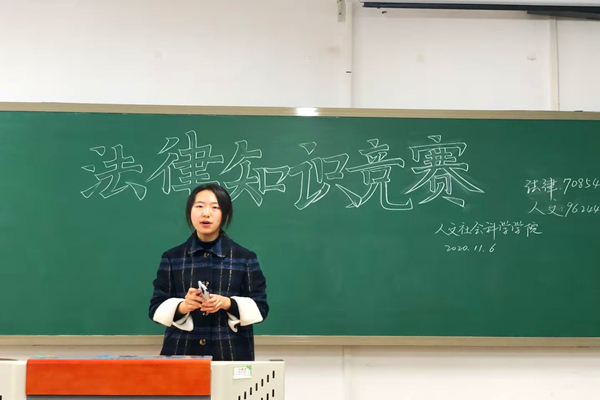 法律知识竞赛
法律:70854
人文:96244
人文社会科学学院
2020.11.6